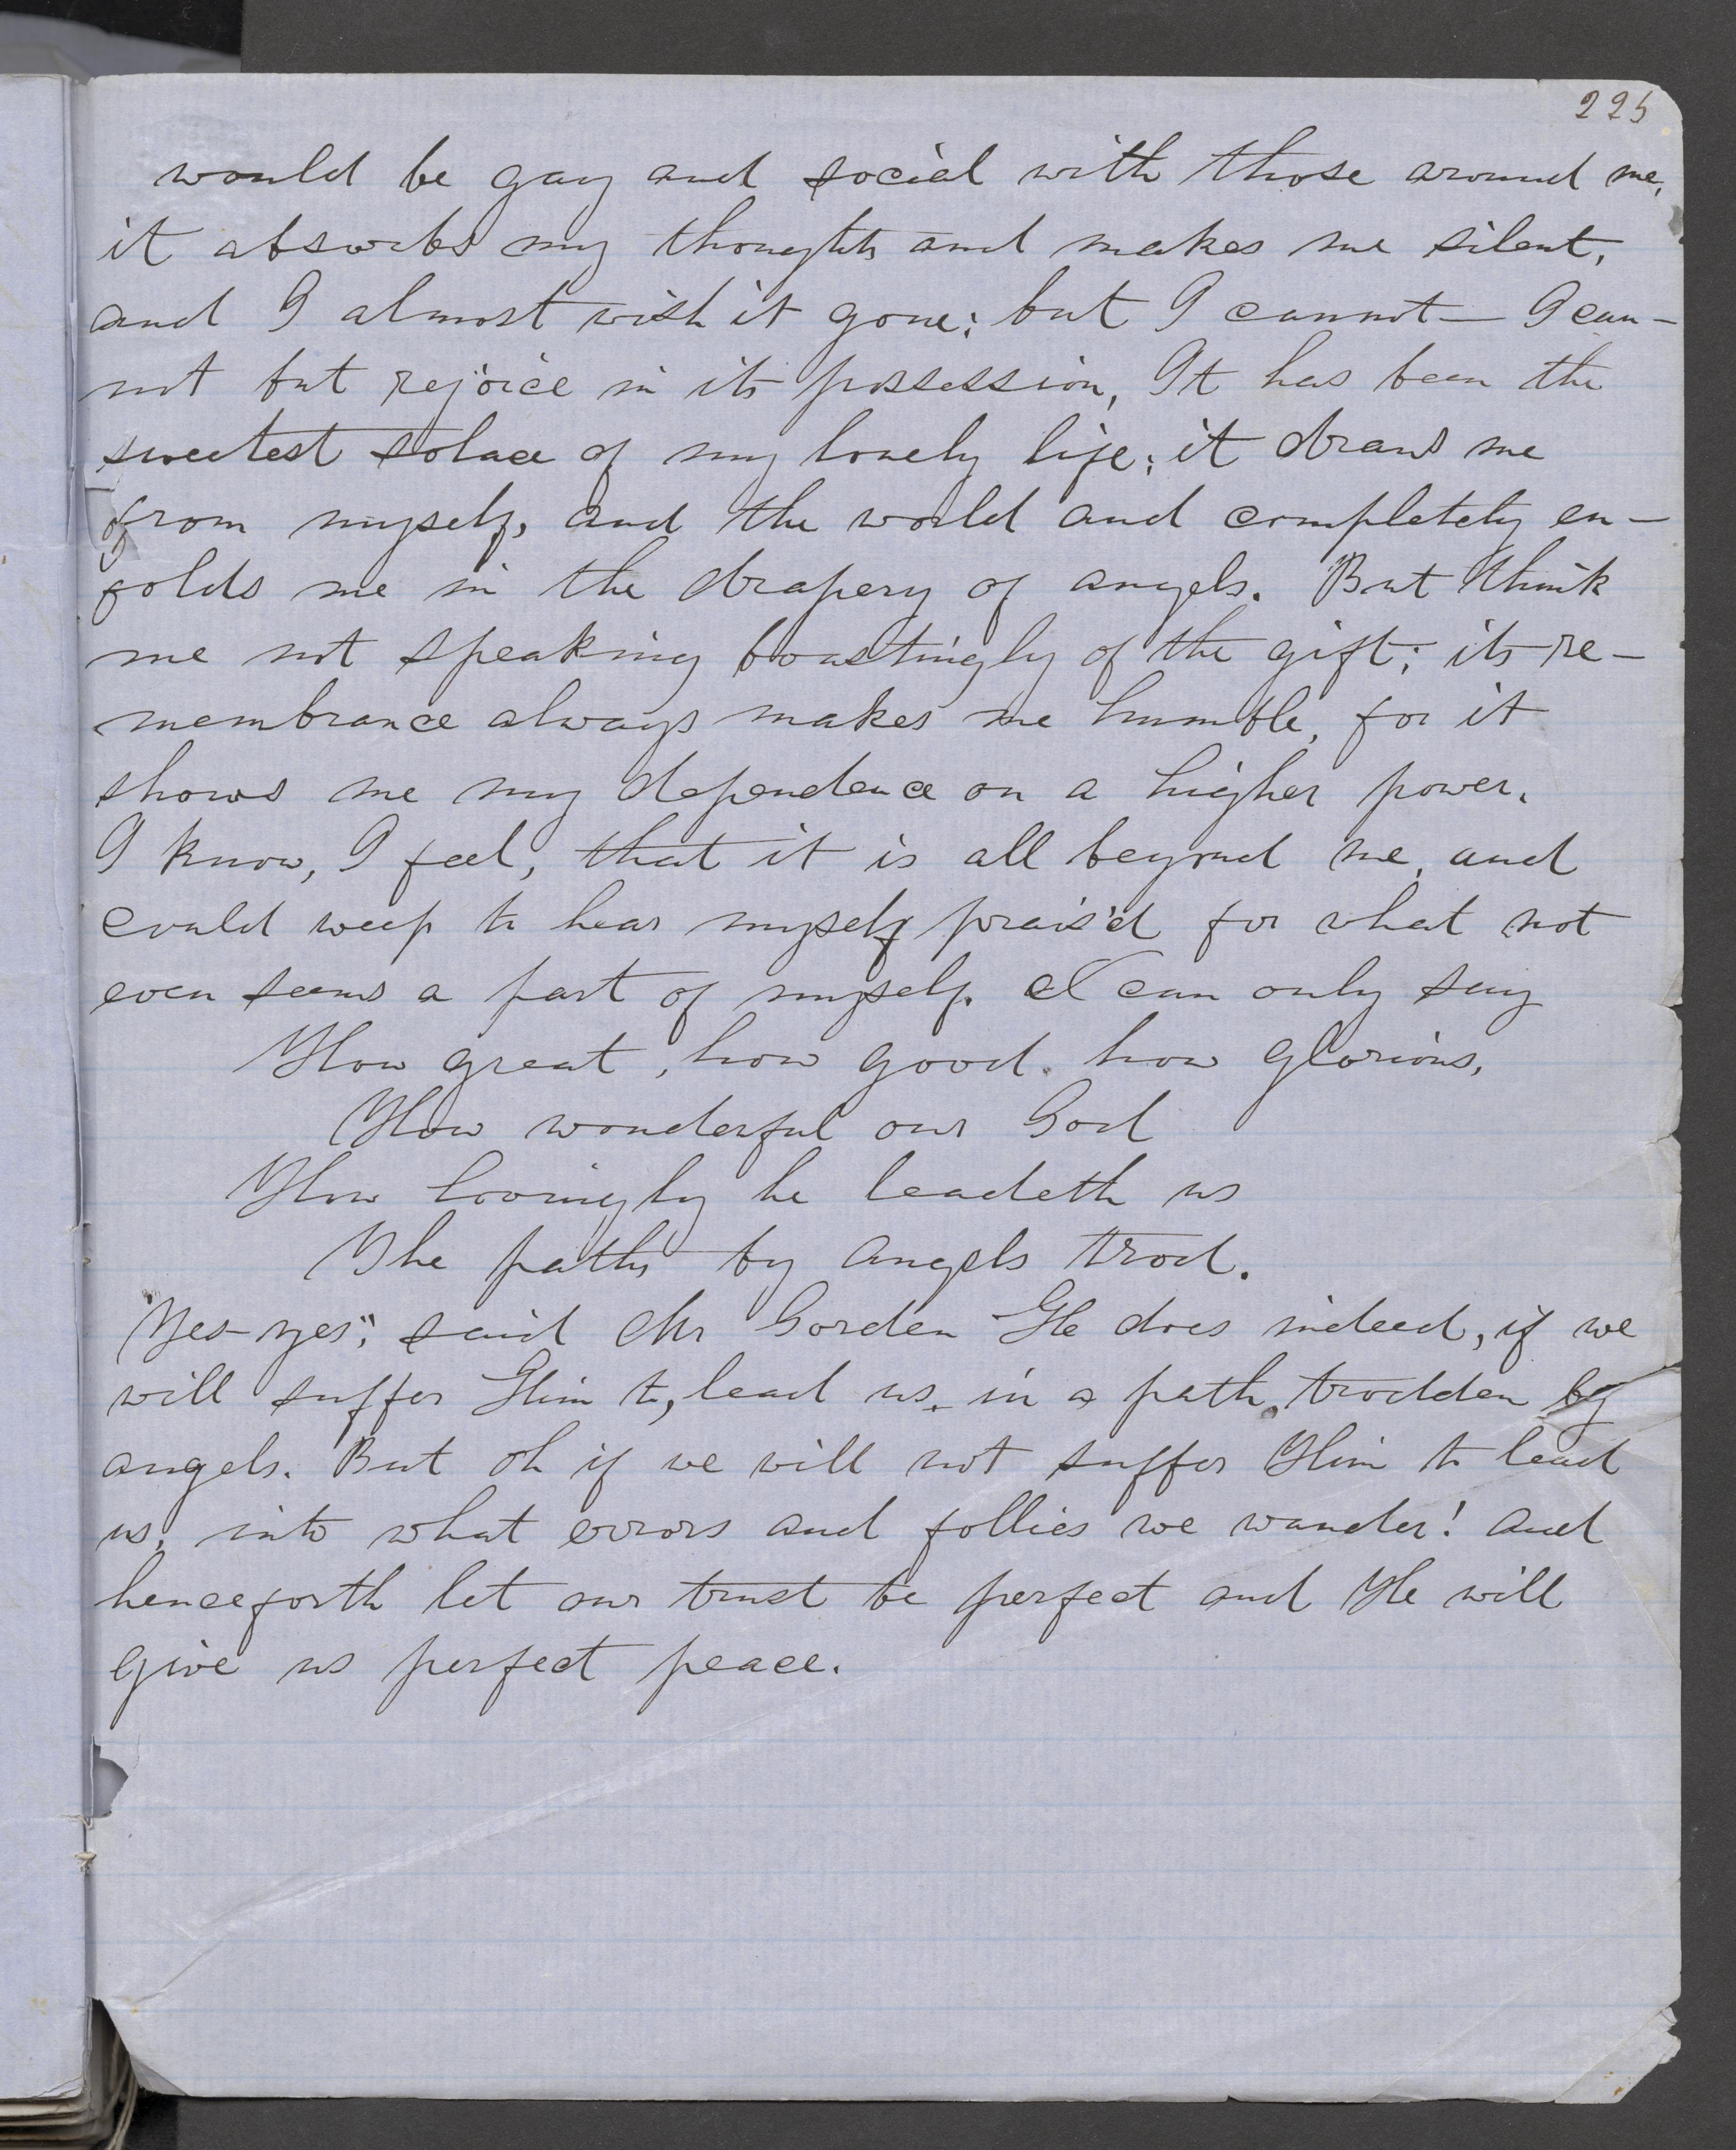 225
would be gay and social with those around me,
it absorbs my thoughts and makes me silent,
and I almost wish it gone; but I cannot — I can-
not but rejoice in its possession, It has been the
sweetest solace of my lonely life; it draws me
from myself, and the world and completely en-
folds me in the drapery of angels. But think
me not speaking boastingly of the gift; its re-
membrance always makes me humble, for it
shows me my dependence on a higher power.
I know, I feel, that it is all beyond me, and
could weep to hear myself prais'd for what not
even seems a part of myself. I can only say
How great, how good, how glorious,
How wonderful our God
How lovingly he leadeth us
The paths by angels trod.
"Yes-yes", said Mr Gorden He does indeed, if we
will suffer Him to, lead us, in a path, trodden by
angels. But oh if we will not suffer Him to lead
us, into what errors and follies we wander! And
henceforth let our trust be perfect and He will
give us perfect peace.